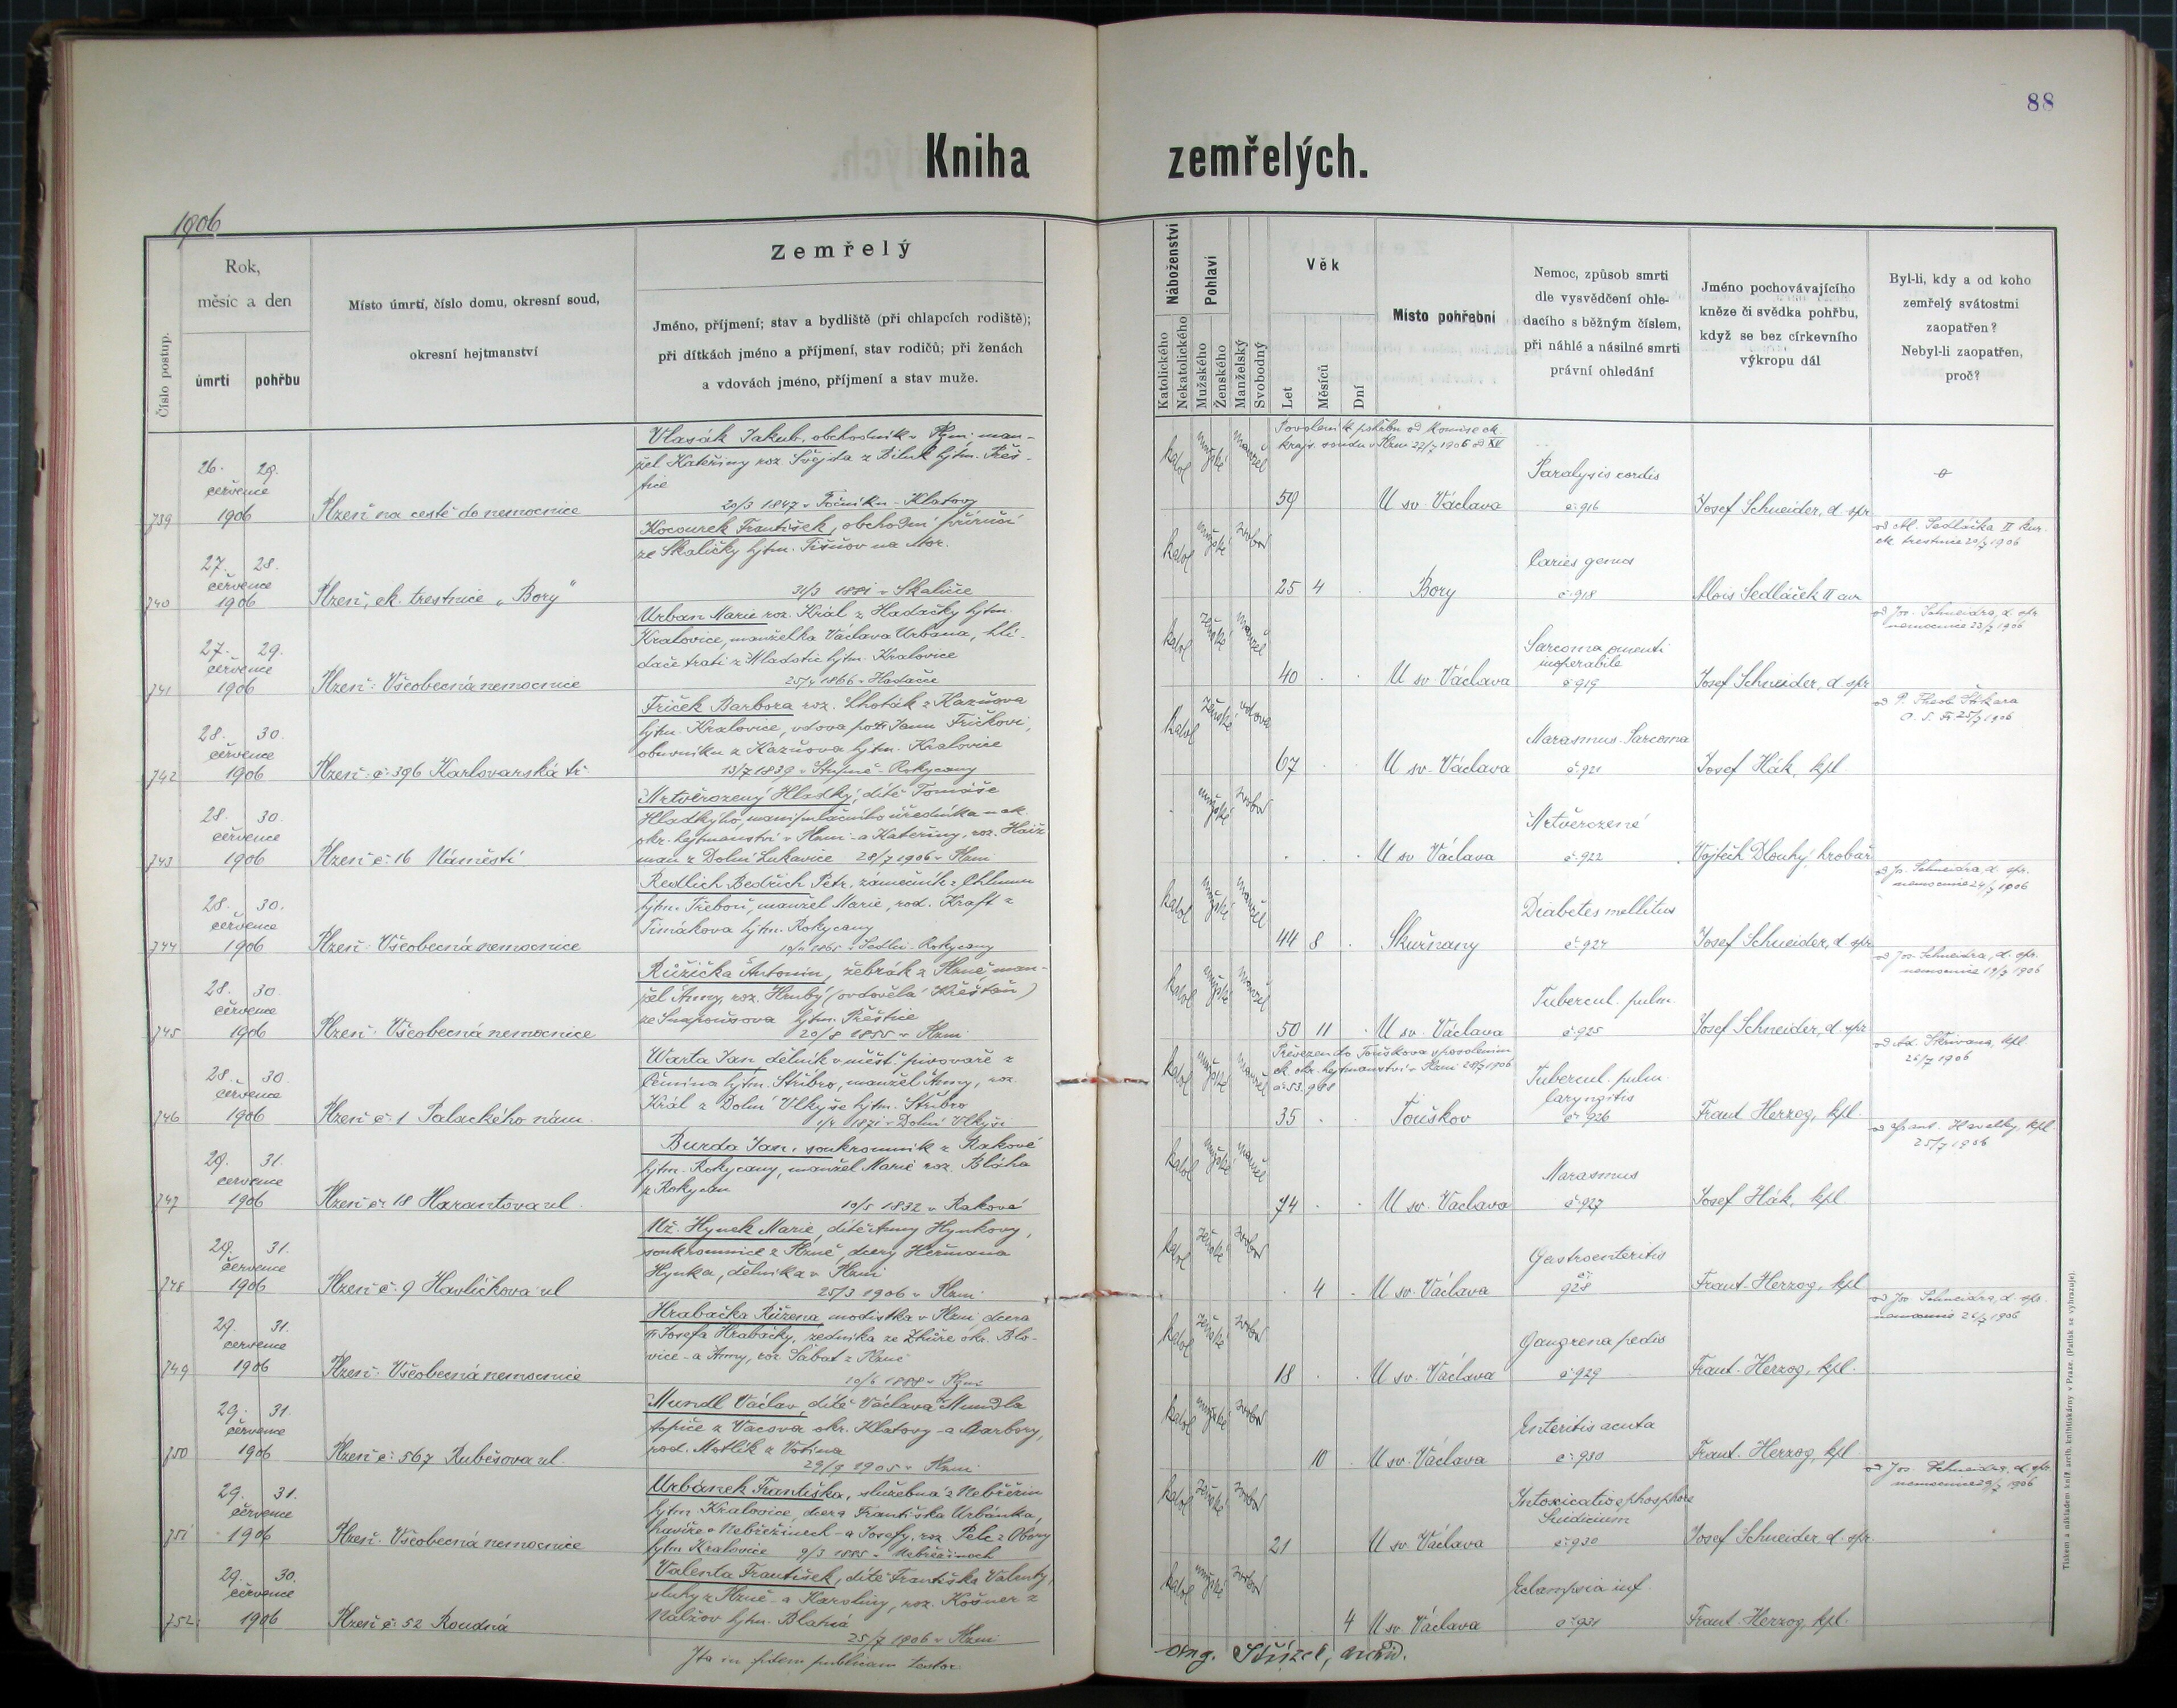 88
Kniha zemřelých.
1906
Číslo postup.
Rok,
měsíc a den
úmrtí
pohřbu
Místo úmrtí, číslo domu, okresní soud,
okresní hejtmanství
Zemřelý
Jméno, příjmení; stav a bydliště (při chlapcích rodiště);
při dítkách jméno a příjmení, stav rodičů; při ženách
a vdovách jméno, příjmení a stav muže.
Náboženství
Katolického
Nekatolického
Pohlaví
Mužského
Ženského
Manželský
Svobodný
Věk
Let
Měsíců
Dní
Místo pohřební
Nemoc, způsob smrti
dle vysvědčení ohle-
dacího s běžným číslem,
při náhlé a násilné smrti
právní ohledání
Jméno pochovávajícího
kněze či svědka pohřbu,
když se bez církevního
výkropu dál
Byl-li, kdy a od koho
zemřelý svátostmi
zaopatřen?
Nebyl-li zaopatřen,
proč?
739
26. 29.
července
1906
Plzeň na cestě do nemocnice
Vlasák Jakub, obchodník v Plzni, man-
žel Kateřiny roz. Švejda z Bíluk hjtm. Přeš-
tice
20/3 1847 v Točníku - Klatovy
katol mužské manžel
Povolení k pohřbu od komise ck.
kraj. soudu v Plzni 27/7 1906 od XV
59
U sv. Václava
Paralysis cordis
č. 916
Josef Schneider, d. spr
740
27. 28.
července
1906
Plzeň, ck. trestnice „Bory"
Kocourek František, obchodní příručí
ze Skaličky hjtm. Tišnov na Mor.
31/3 1881 v Skaličce
katol mužské svobod
25 4
Bory
Caries genus
č. 918
Alois Sedláček II cur
od Al. Sedláčka II kur.
ck. trestnice 20/7 1906
741
27. 29.
července
1906
Plzeň: Všeobecná nemocnice
Urban Marie roz. Král z Hadačky hjtm.
Kralovice, manželka Václava Urbana, hlí-
dače trati z Mladotic hjtm. Kralovice
25/4 1866 v Hadačce
katol ženské manžel
40
U sv. Václava
Sarcoma omenti
inoperabile
č. 919
Josef Schneider, d. spr
od Jos. Schneidra, d. spr.
nemocnice 23/7 1906
742
28. 30.
července
1906
Plzeň: č. 396 Karlovarská tř.
Friček Barbora roz. Lhoták z Kazňova
hjtm. Kralovice, vdova po † Janu Fričkovi,
obuvníku z Kazňova hjtm. Kralovice
13/7 1839 v Stupně - Rokycany
katol ženské vdova
67
U sv. Václava
Marasmus. Sarcoma
č. 921
Josef Hák, kpl
od P. Theob. Štikara
O. S. Fr. 25/7 1906
743
28. 30.
července
1906
Plzeň č. 16 Náměstí
Mrtvěrozený Hladký, dítě Tomáše
Hladkýho, manipulačního úředníka u ck.
okr. hejtmanství v Plzni - a Kateřiny, roz. Haiz
man z Dolní Lukavice 28/7 1906 v Plzni
mužské svobod
U sv. Václava
Mrtvěrozené
č. 922
Vojtěch Dlouhý hrobař
744
28. 30.
července
1906
Plzeň: Všeobecná nemocnice
Redlich Bedřich Petr, zámečník z Chlumu
hjtm. Třeboň, manžel Marie, rod. Kraft z
Timákova hjtm. Rokycany
v Sedlci - Rokycany
katol mužské manžel
44 8
Skvrňany
Diabetes mellitus
č. 924
Josef Schneider, d. spr
od Js. Schneidra, d. spr.
nemocnice 24/7 1906
745
28. 30
července
1906
Plzeň: Všeobecná nemocnice
Růžička Antonín, žebrák z Plzně, man-
žel Anny, roz. Hrubý (ovdovělá Křešťan)
ze Snopoušova hjtm. Přeštice
20/8 1855 v Plzni
katol mužské manžel
50 11
U sv. Václava
Tubercul. pulm.
č. 925
Josef Schneider, d. spr
od Jos. Schneidra, d. spr.
nemocnice 19/7 1906
746
28. 30
července
1906
Plzeň č. 1 Palackého nám.
Warta Jan, dělník v měšť. pivovaře z
Čemína hjtm. Stříbro, manžel Anny, roz.
Král z Dolní Vlkýše hjtm. Stříbro
1871 v Dolní Vlkýši
katol mužské manžel
Převezen do Touškova s povolením
ck. okr. hejtmanství v Plzni 28/7 1906
č. 53.988
35
Touškov
Tubercul. pulm.
laryngitis
č. 926
Frant Herzog, kpl.
od Ad. Skřivana, kpl.
26/7 1906
747
29. 31.
července
1906
Plzeň č. 18 Harantova ul.
Burda Jan, soukromník z Rakové
hjtm. Rokycany, manžel Marie roz. Bláha
z Rokycan
10/5 1832 v Rakové
katol mužské manžel
74
U sv. Václava
Marasmus
č. 927
Josef Hák, kpl.
od Frant. Havelky, kpl.
25/7 1906
748
29. 31.
července
1906
Plzeň č. 9 Havlíčkova ul
Nž. Hynek Marie, dítě Anny Hynkovy,
soukromnice z Plzně, dcery Heřmana
Hynka, dělníka v Plzni
25/3 1906 v Plzni
katol ženské svobod
4
U sv. Václava
Gastroenteritis
č.
928
Frant. Herzog, kpl
749
29. 31.
července
1906
Plzeň: Všeobecná nemocnice
Hrabačka Růžena, modistka v Plzni, dcera
† Josefa Hrabačky, zedníka ze Zhůře okr. Blo-
vice - a Anny, roz. Šabat z Plzně
10/6 1888 v Plzni
katol ženské svobod
18
U sv. Václava
Gangrena pedis
č. 929
Frant. Herzog, kpl.
od Jos. Schneidra, d. spr.
nemocnice 26/7 1906
750
29. 31.
července
1906
Plzeň č. 567 Rubešova ul.
Mundl Václav, dítě Václava Mundla
topiče z Vacova okr. Klatovy - a Barbory,
rod. Motlík z Votína
29/9 1905 v Plzni
katol mužské svobod
10
U sv. Václava
Enteritis acuta
č. 930
Frant. Herzog, kpl
751
29. 31.
července
1906
Plzeň: Všeobecná nemocnice
Urbánek Františka, služebná z Nebřezin
hjtm. Kralovice, dcera Františka Urbánka,
havíře v Nebřezinech - a Josefy, roz. Pelc z Obory
hjtm Kralovice 9/3 1885 v Nebřezinech
katol ženské svobod
21
U sv. Václava
Intoxicatio e phosphore
Suidicium
č. 930
Josef Schneider d. spr.
od Jos. Schneidra, d. spr.
nemocnice 29/7 1906
752
29. 30.
července
1906
Plzeň č. 52 Roudná
Valenta František, dítě Františka Valenty,
sluhy z Plzně - a Karoliny, roz. Košner z
Nálžov hjtm. Blatná
25/7 1906 v Plzni
katol mužské svobod
4
U sv. Václava
Eclampsia inf.
č. 931
Frant. Herzog, kpl.
Ita in fidem publicam testor
Tiskem a nákladem kníž. arcib. knihtiskárny v Praze. (Patisk se vyhrazuje).